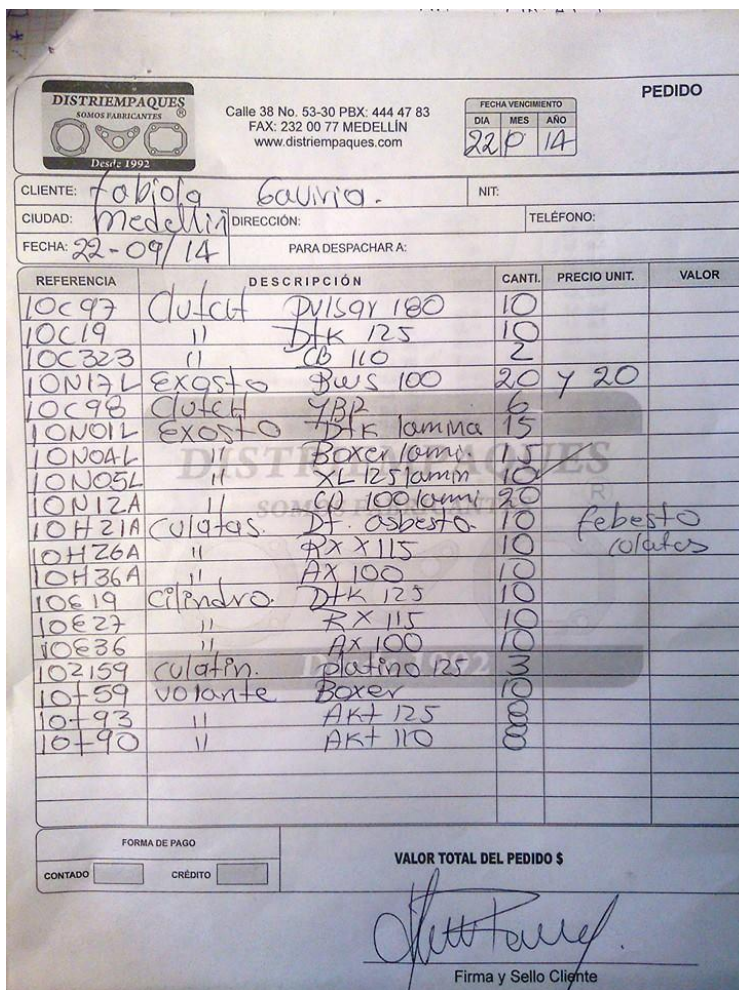 DISTRIEMPAQUES
SOMOS FABRICANTES ®
Desde 1992
Calle 38 No. 53-30 PBX: 444 47 83
FAX: 232 00 77 MEDELLÍN
www.distriempaques.com
PEDIDO
FECHA VENCIMIENTO
DIA MES AÑO
22 14
CLIENTE: Fabiola Gaviria.
NIT:
CIUDAD: Medellin
DIRECCIÓN:
TELÉFONO:
FECHA: 22-09/14
PARA DESPACHAR A:
REFERENCIA DESCRIPCIÓN CANTI. PRECIO UNIT. VALOR
10C97 Clutch Pulsar 180 10
10C19 " Dtk 125 10
10C323 " CB 110 2
10N17L Exosto Bws 100 20 y 20
10C98 Clutch YBR 6
10N01L Exosto Dtk lamina 15
10N04L " Boxer lami. 15
10N05L " XL 125 lamin 10
10N12A " CD 100 lami 20
10H21A Culatas. Dt. asbesto. 10 febesto
10H26A " RX X115 10 culatas
10H36A " AX 100 10
10E19 Cilindro. Dtk 125 10
10E27 " RX 115 10
10E36 " AX 100 10
102159 culatin. platino 125 3
10t59 volante Boxer 10
10t93 " AKt 125 8
10t90 " AKt 110 8
FORMA DE PAGO
CONTADO CRÉDITO
VALOR TOTAL DEL PEDIDO $
Firma y Sello Cliente